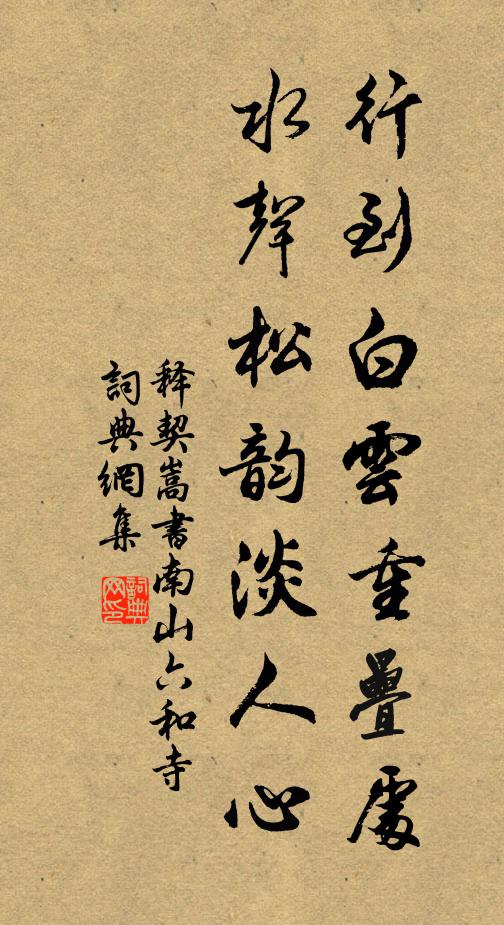 行到白雲重疊處
水聲松韵淡人心
释契嵩書南山六和寺
詞典網集
詞典网印